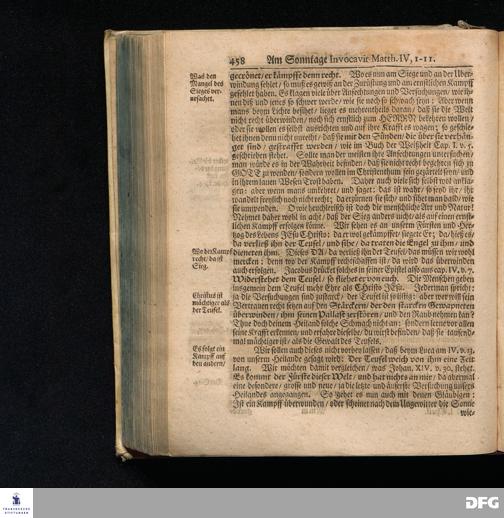 458 Am Sonntage Invocavit Matth. IV, 1-11.
Was den
Mangel des
Sieges ver-
ursachet.
gecrönet / er kämpffe denn recht. Wo es nun am Siege und an der Uber-
windung fehlet / so muß es gewiß an der Zurüstung und am ernstlichen Kampff
gefehlet haben. Es klagen viele über Anfechtungen und Versuchungen / wie ih-
nen diß und jenes so schwer werde / wie sie noch so schwach seyn: Aber wenn
mans beym Lichte besihet / lieget es mehrentheils daran / daß sie die Welt
nicht recht überwinden / noch sich ernstlich zum HERRN bekehren wollen /
oder sie wollen es selbst ausrichten und auf ihre Krafft es wagen; so geschie-
het ihnen denn nicht unrecht / daß sie mit den Sünden / die über sie verhän-
get sind / gestraffet werden / wie im Buch der Weißheit Cap. I. v. 5.
geschrieben stehet. Solte man der meisten ihre Anfechtungen untersuchen /
man würde es in der Wahrheit befinden / daß sie nicht recht begehren sich zu
GOTT zu wenden / sondern wollen im Christenthum sein gezärtelt seyn / und
in ihrem lauen Wesen Trost haben. Daher auch viele sich selbst wol ankla-
gen: aber wenn mans umkehret / und saget: das ist wahr / so seyd ihr / ihr
wandelt freylich noch nicht recht; da erzürnen sie sich / und sihet man bald / wie
sie umwenden. O wie heuchlerisch ist doch die menschliche Art und Natur!
Nehmet daher wohl in acht / daß der Sieg anders nicht / als auf einen ernst-
lichen Kampff erfolgen könne. Wir sehen es an unserm Fürsten und Her-
tzog des Lebens JEsu Christo: Da er wol gekämpffet / sieget Er; da / hieß es /
da verließ ihn der Teufel / und sihe / da traten die Engel zu ihm / und
Wo der Kampf
recht / da ist
Sieg.
dieneten ihm. Dieses DA / da verließ ihn der Teufel / das müssen wir wohl
mercken: denn wo der Kampff rechtschaffen ist / da wird das überwinden
auch erfolgen. Jacobus drücket solches in seiner Epistel also aus cap. IV. v. 7.
Widerstehet dem Teufel / so fliehet er von euch. Die Menschen geben
insgemein dem Teufel mehr Ehre als Christo JEsu. Jederman spricht:
Christus ist
mächtiger als
der Teufel.
ja die Versuchungen sind zu starck / der Teufel ist zu listig: aber wer will sein
Vertrauen recht setzen auf den Stärckern / der den starcken Gewapneten
überwinden / ihm seinen Pallast zerstören / und den Raub nehmen kan?
Thue doch deinem Heiland solche Schmach nicht an: sondern lerne vor allen
seine Kraft erkennen / und erfahre dieselbe / du wirst befinden / daß sie tausend-
mal mächtiger ist / als die Gewalt des Teufels.
Es folgt ein
Kampff auf
den andern /
Wir sollen auch dieses nicht vorbey lassen / daß beym Luca am IV. v. 13.
von unserm Heilande gesagt wird: Der Teufel weich von ihm eine Zeit
lang. Wir möchten damit vergleichen / was Johan. XIV. v. 30. stehet.
Es kommt der Fürste dieser Welt / und hat nichts an mir / da abermal
eine besondere / grosse und neue / ja die letzte und äuserste Versuchung unsers
Heilandes angegangen. So gehet es nun auch mit denen Gläubigen:
Ist ein Kampff überwunden / oder scheinet nach dem Ungewitter die Sonne
wie-
FRANCKESCHE
STIFTUNGEN
DFG